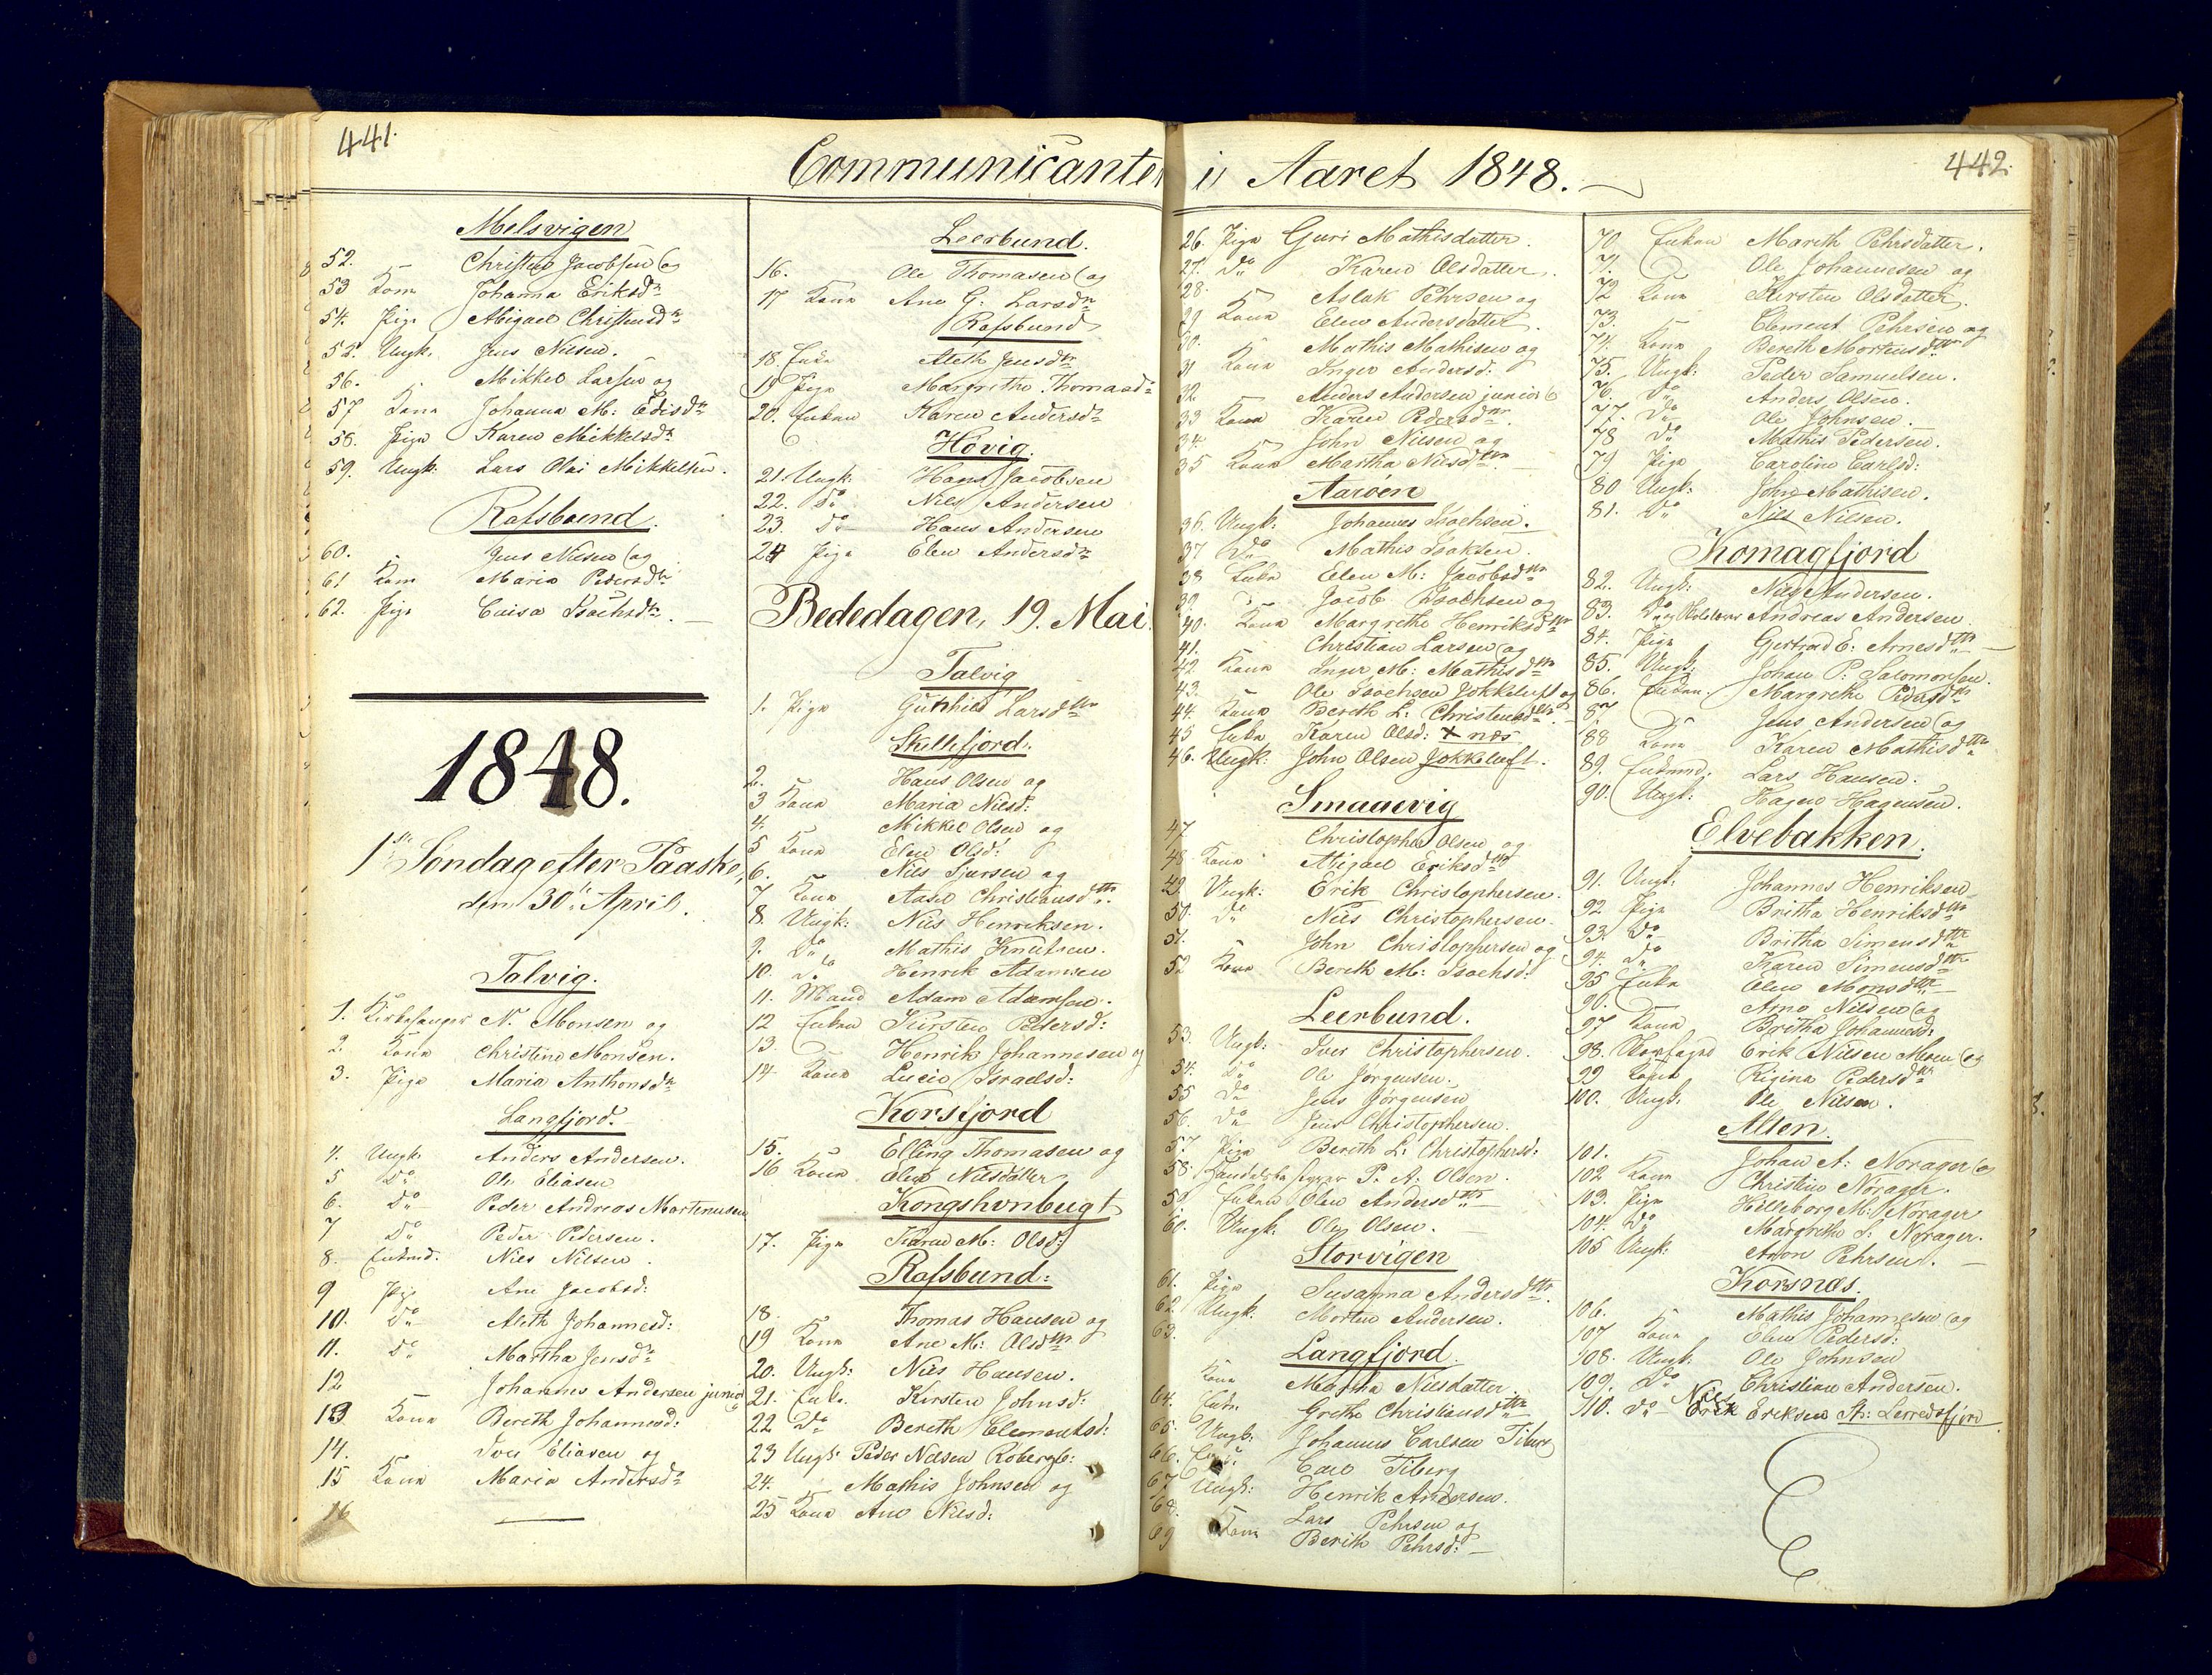 441.
Communicanter i Aaret 1848.
442.
Melsvigen
52. Christen Jacobsen og
53 Kone Johanna Eriksdr
54. Pige Abigael Christensdr
55. Ungk. Jens Nilsen.
56. Mikkel Larsen og
57 Kone Johanna M: Edisdr
58. Pige Karen Mikkelsdr
59. Ungk. Lars Olai Mikkelsen.
Rafsboend.
60. Jens Nilsen og
61 Kone Maria Pedersdr
62. Pige Luisa Isachsdr.
1848.
1ste Søndag efter Paaske,
den 30te April.
Talvig.
1. Kirkesanger N. Monsen og
2. Kone Christine Monsen.
3. Pige Maria Anthonsdr
Langfjord.
4. Ungk. Anders Andersen.
5 Do Ole Eliasen
6. Do Peder Andreas Martenusen
7 Do Peder Pedersen.
8. Enkmd. Niels Nilsen.
9 Pige Ane Jacobsd:
10. Do Aleth Johannesd:
11. Do Martha Jensdr
12 Johannes Andersen junior
13 Kone Bereth Johannesd:
14. Iver Eliasen og
15 Kone Maria Andersdr
16
Leerbund.
16. Ole Thomasen og
17 Kone Ane G: Larsdr
Rafsbund
18. Enke Aleth Jensdr
19 Pige Margrethe Thomasdr
20. Enken Karen Andersdr
Høvig.
21. Ungk: Hans Jacobsen
22. Do Niels Andersen
23. Do Hans Andersen
24 Pige Elen Andersdr
Bededagen, 19. Mai.
Talvig
1. Pige Gunhild Larsdtr
Skillefjord.
2. Hans Olsen og
3 Kone Maria Nilsd:
4. Mikkel Olsen og
5 Kone Elen Olsd:
6. Nils Sjursen og
7 Kone Aase Christiansdtr.
8. Ungk: Nils Henriksen.
9. Do Mathis Knutsen.
10. Do Henrik Adamsen
11. Mand Adam Adamsen.
12 Enken Kirsten Pedersd:
13. Henrik Johannesen og
14 Kone Lucie Israelsd:
Korsfjord
15. Elling Thomasen og
16 Kone Elen Nilsdatter
Kongshvnbugt
17. Pige Karen M: Olsd:
Rafsbund:
18. Thomas Hansen og
19 Kone Ane M: Olsdtr
20. Ungk: Nils Hansen.
21. Enke. Kirsten Johnsd:
22 Do Bereth Clementsd:
23 Ungk: Peder Nilsen Robergb:
24. Mathis Johnsen og
25 Kone Ane Nilsd:
26. Pige Guri Mathisdatter.
27. Do Karen Olsdatter.
28. Aslak Pehrsen og
29 Kone Elen Andersdatter.
30. Mathis Mathisen og
31 Kone Inger Andersd:
32 Anders Andersen junior og
33 Kone Karen Pedersdtr.
34. John Nilsen og
35 Kone Martha Nilsdtr.
Aarøen
36. Ungk: Johannes Isachsen.
37 Do Mathis Isaksen.
38 Enke Elen M: Jacobsdtr
39. Jacob Isachsen og
40. Kone Margrethe Henriksdtr
41. Christian Larsen og
42. Kone Inger M: Mathisdtr
43. Ole Isachsen Jokkeluft og
44. Kone Bereth L: Christensdtr.
45 Enke Karen Olsd: X næs
46. Ungk: John Olsen Jokkeluft.
Smaaevig
47. Christopher Olsen og
48 Kone Abigael Eriksdtr
49. Ungk: Erik Christophersen.
50. Do Nils Christophersen.
51. John Christophersen og
52 Kone Bereth M: Isachsd:
Leerbund.
53. Ungk: Iver Christophersen.
54. Do Ole Jørgensen.
55 Do Jens Jørgensen
56. Do Jens Christophersen.
57. Pige Bereth L: Christophersd:
58. Handelsbestyrer P. A. Olsen.
59 Enken Olen Andersdtr
60. Ungk: Ole Olsen.
Storvigen
61. Pige Susanna Andersdtr.
62. Ungk: Morten Andersen.
63.
Langfjord.
Kone Martha Nilsdatter
64. Enke Grethe Christiansdtr
65. Ungk: Johannes Carlsen Tiberg
66. Carl Tiberg
67 Ungk: Henrik Andersen.
68. Lars Pehrsen og
69 Kone Berith Pehrsd:
70. Enken Marith Pehrsdatter.
71. Ole Johannesen og
72 Kone Kirsten Olsdatter.
73. Clement Pehrsen og
74. Kone Bereth Mortensdtr
75. Ungk: Peder Samuelsen.
76. Do Anders Olsen.
77. Do Ole Johnsen.
78 Do Mathis Pedersen.
79 Pige Caroline Carlsd:
80 Ungk: John Mathisen.
81. Do Nils Nilsen.
Komagfjord
82. Ungk: Nils Andersen.
83. Do Andreas Andersen.
84. Pige Gertrud E: Arnesdtr
85. Ungk: Johan P: Salomonsen.
86. Enken. Margrethe Pedersdtr
87 Jens Andersen og
88 Kone Karen Mathisdtr
89. Enkemd. Lars Hansen.
90. Ungk: Hagen Hagensen.
Elvebakken.
91. Ungk: Johannes Henriksen
92 Pige Britha Henriksdtr
93. Do Britha Simensdtr
94. Do Karen Simensdtr
95 Enke Olen Monsdtr
96. Arne Nilsen og
97 Kone Britha Johannesd:
98. Skovfoged Erik Nilsen Moen og
99 Kone Rigina Pedersdtr
100. Ungk: Ole Nilsen.
Alten.
101. Johan A: Norager og
102 Kone Christine Norager.
103. Pige Hilleborg M: Norager
104. Do Margrethe S: Norager.
105 Ungk: Anton Pehrsen.
Korsnæs.
106. Mathis Johannesen og
107 Kone Elen Pedersd:
108. Ungk: Ole Johnsen
109. Do Christian Andersen.
110. Do Nils Eriksen St: Lerredsfjord